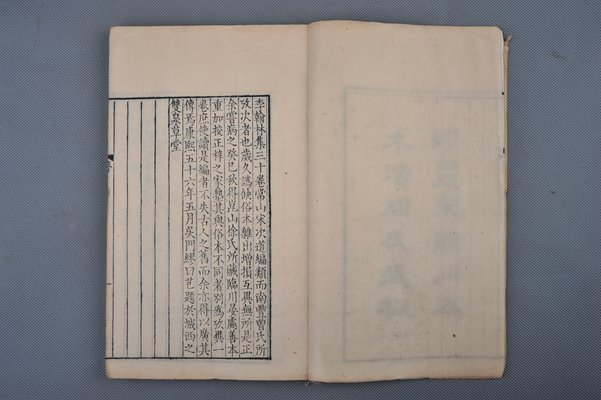 李翰林集三十卷常山宋次道編類而南豐曾氏所
攷次者也歲久譌缺俗本雜出增損互異無所是正
余嘗病之癸巳秋得崑山徐氏所藏臨川晏處善本
重加校正梓之家塾其與俗本不同者別爲攷異一
卷庶使讀是編者不失古人之舊而余亦得以廣其
傳焉康熙五十六年五月吳門繆曰芑題於城西之
雙泉草堂